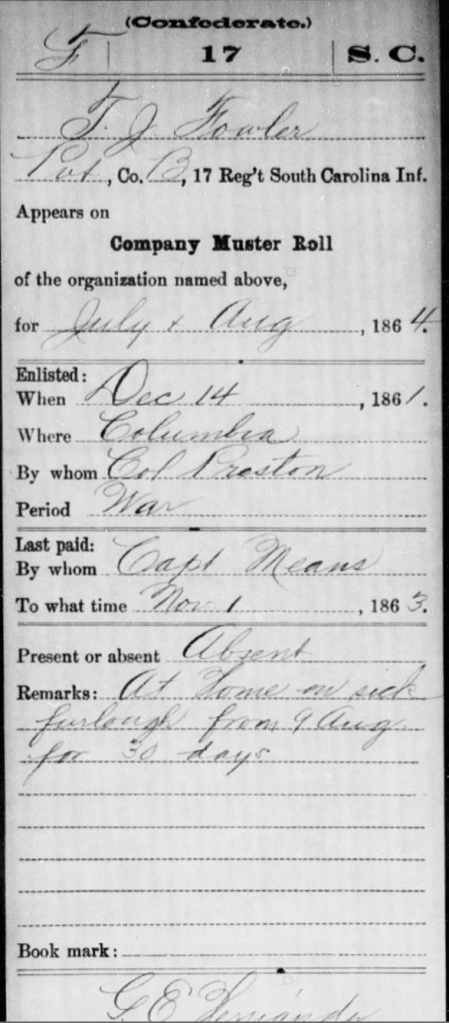 (Confederate.)
F | 17 | S. C.
T. J. Fowler
Pvt, Co. B, 17 Reg't South Carolina Inf.
Appears on
Company Muster Roll
of the organization named above,
for July & Aug, 1864.
Enlisted:
When Dec 14, 1861.
Where Columbia
By whom Col Preston
Period War
Last paid:
By whom Capt Means
To what time Nov 1, 1863.
Present or absent Absent
Remarks: At Home on sick
furlough from 9 Aug
for 30 days
Book mark:
G. E.